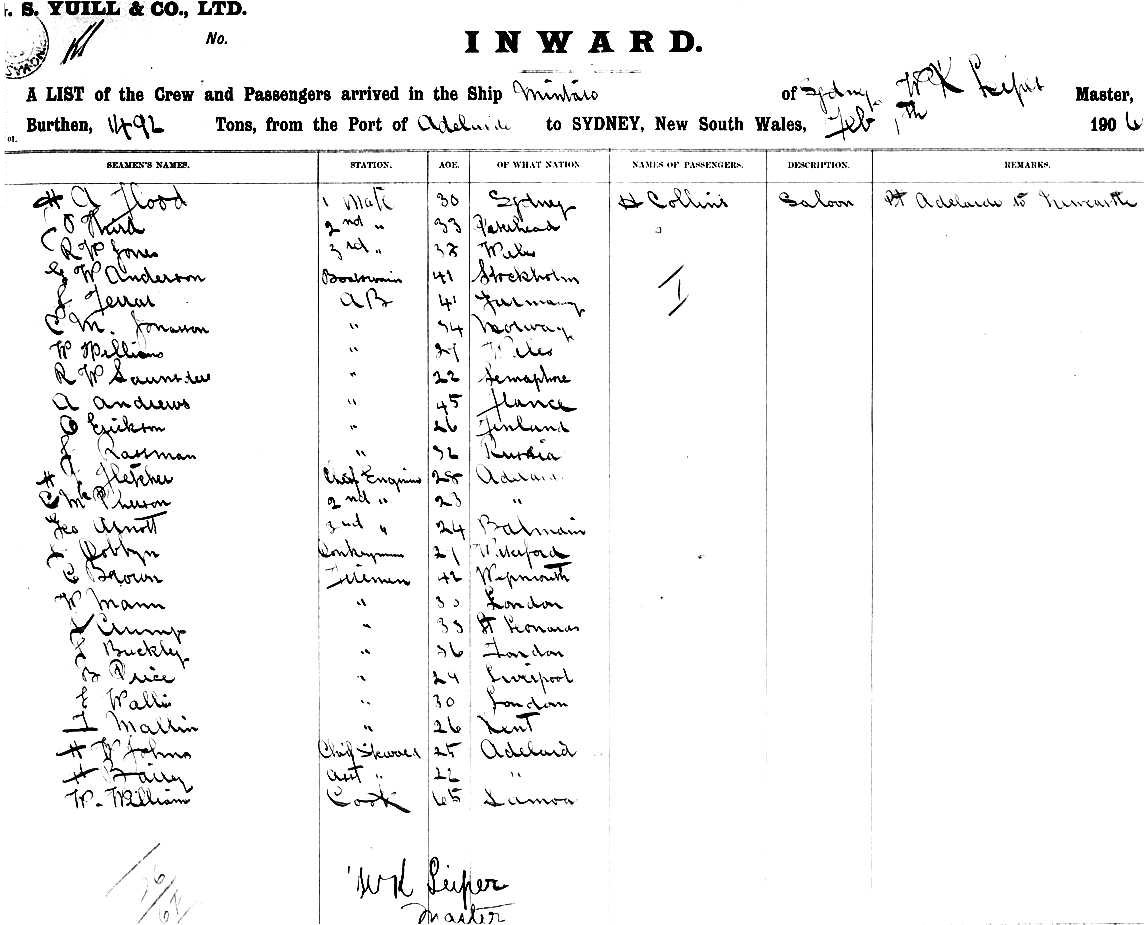 . S. YUILL & CO., LTD.
No.
INWARD.
A LIST of the Crew and Passengers arrived in the Ship Mintaro of Sydney W K Leiper Master,
Burthen, 1492 Tons, from the Port of Adelaide to SYDNEY, New South Wales, Feb 7th 1906
SEAMEN'S NAMES. STATION. AGE. OF WHAT NATION NAMES OF PASSENGERS. DESCRIPTION. REMARKS.
H A Flood 1 Mate 30 Sydney H Collins Saloon Pt Adelaide to Newcastle
2nd " 33
R W Jones 3rd " 38 Wales
W Anderson Boatswain 41 Stockholm
AB 41 Germany
C M. Jonasson " 34 Norway
W Williams " Wales
R W Saunders " 22 Semaphore
A Andrews " 45 France
O Erikson " 26 Finland
Rassman " 32 Russia
H Fletcher Chief Engineer 28
C McPherson 2nd " 23 "
Geo Arnott 3rd " 24 Balmain
Dobbyn Donkeyman Waterford
C Brown Firemen 42 Weymouth
W Mann " 30 London
Crump " St Leonards
Buckley " 36 London
Price " Liverpool
Wallis " 30 London
Mallin " 26 Kent
H W Johns Chief Steward 25 Adelaid
H Bairy Asst " 22 "
W. William Cook 65 Samoa
W K Leiper
Master